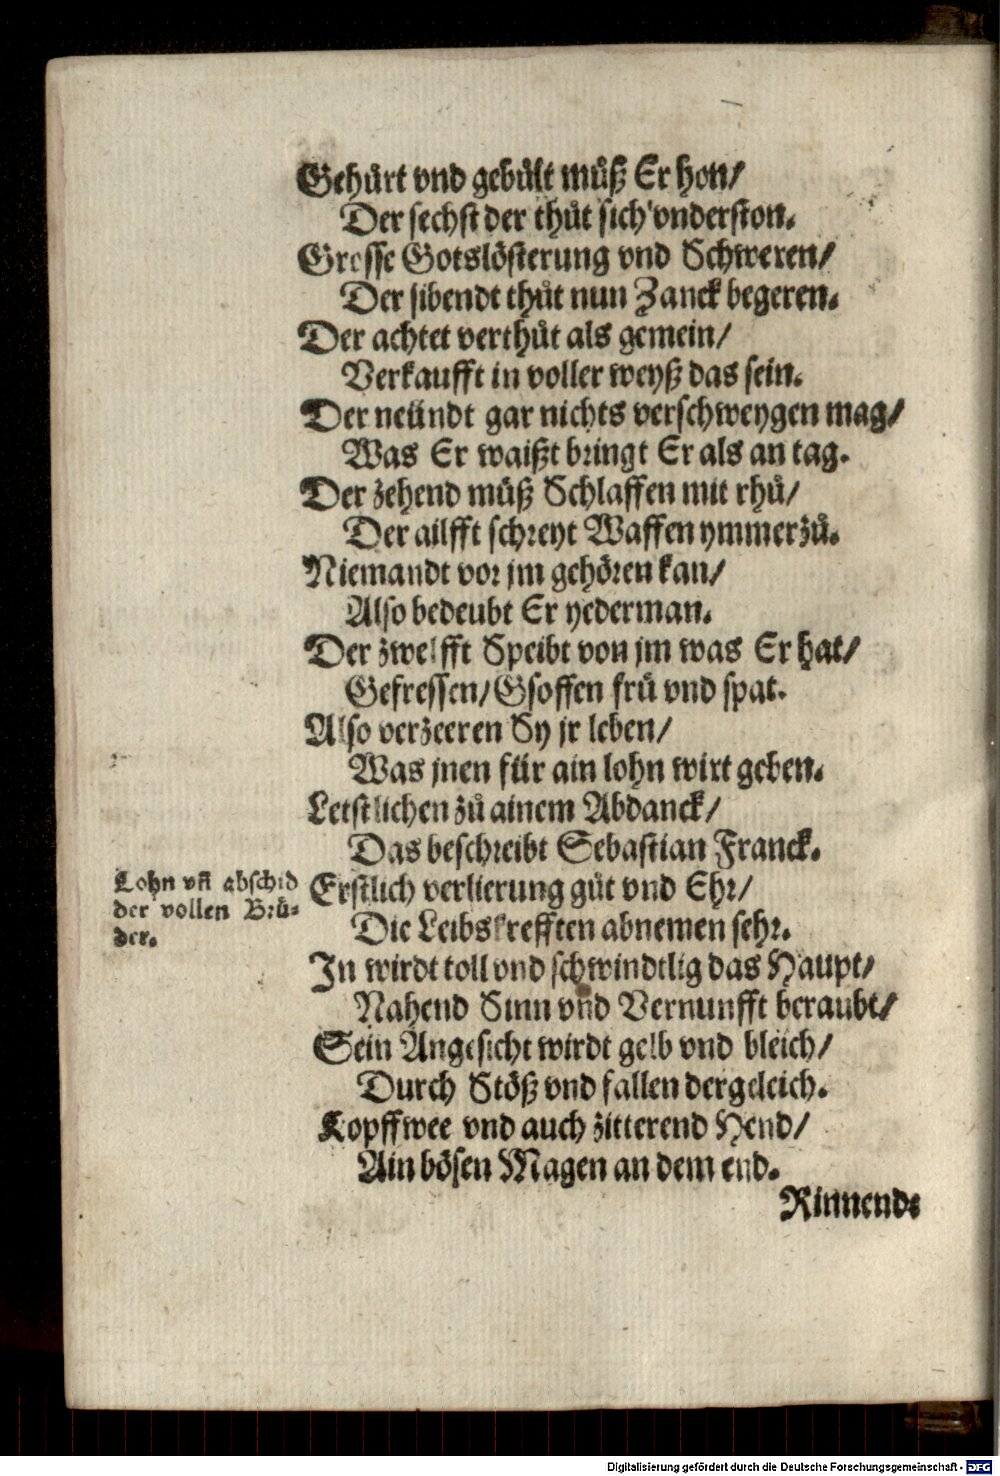 Gehůrt vnd gebůlt můß Er hon/
Der sechst der thůt sich vnderston.
Grosse Gotslösterung vnd Schweren/
Der sibendt thůt nun Zanck begeren.
Der achtet verthůt als gemein/
Verkaufft in voller weyß das sein.
Der neündt gar nichts verschweygen mag/
Was Er waißt bringt Er als an tag.
Der zehend můß Schlaffen mit rhů/
Der ailfft schreyt Waffen ymmerzů.
Niemandt vor jm gehören kan/
Also bedeubt Er yederman.
Der zwelfft Speibt von jm was Er hat/
Gefressen/Gsoffen frů vnd spat.
Also verzeeren Sy jr leben/
Was jnen für ain lohn wirt geben.
Letstlichen zů ainem Abdanck/
Das beschreibt Sebastian Franck.
Lohn vñ abschid
der vollen Brů-
der.
Erstlich verlierung gůt vnd Ehr/
Die Leibskrefften abnemen sehr.
In wirdt toll vnd schwindtlig das Haupt/
Nahend Sinn vnd Vernunfft beraubt/
Sein Angesicht wirdt gelb vnd bleich/
Durch Stöß vnd fallen dergeleich.
Kopffwee vnd auch zitterend Hend/
Ain bösen Magen an dem end.
Rinnend-
Digitalisierung gefördert durch die Deutsche Forschungsgemeinschaft - DFG